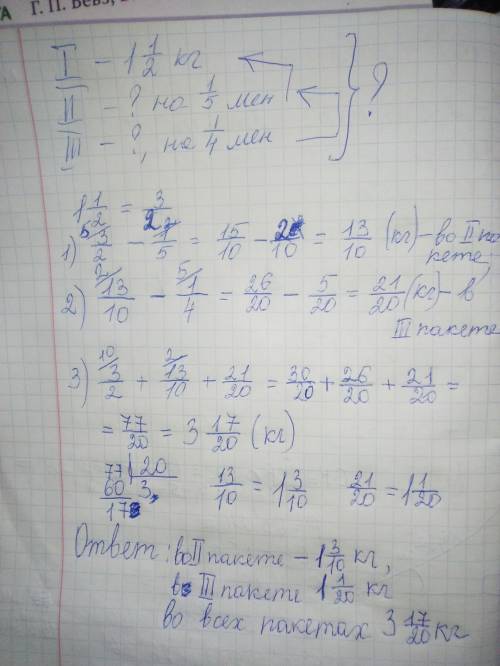 Г. П. Бевз,
I – 1 1/2 кг
II – ? на 1/5 мен
III – ?, на 1/4 мен
?
1 1/2 = 3/2
1) 3/2 – 1/5 = 15/10 – 2/10 = 13/10 (кг) – во II па
кете;
2) 13/10 – 1/4 = 26/20 – 5/20 = 21/20 (кг) – в
III пакете
3) 3/2 + 13/10 + 21/20 = 30/20 + 26/20 + 21/20 =
= 77/20 = 3 17/20 (кг)
77 | 20
60 3
17
13/10 = 1 3/10 21/20 = 1 1/20
Ответ: во II пакете – 1 3/10 кг,
в III пакете 1 1/20 кг
во всех пакетах 3 17/20 кг